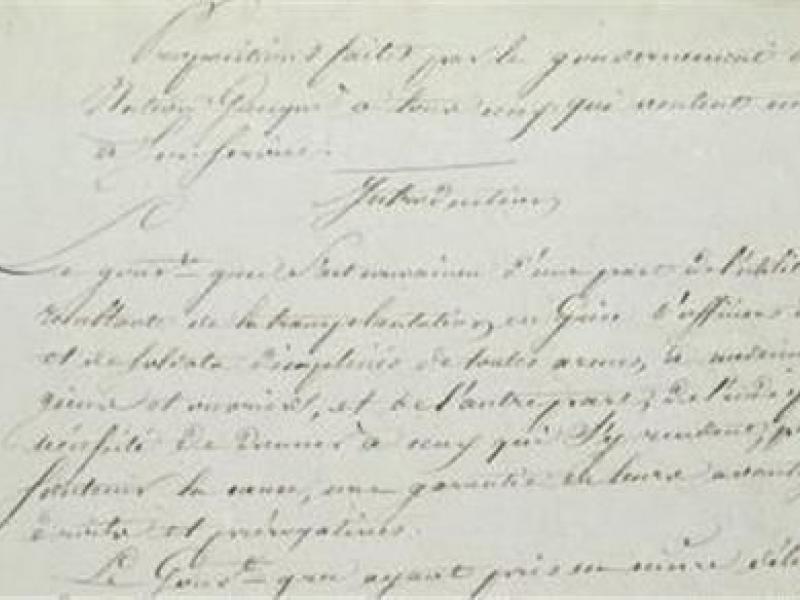 Propositions faites par le gouvernement
Nation Grecque à tous ceux qui veulent
à son service.
Introduction
Le gouv.t grec s'est convaincu d'une part de l'utilit
résultante de la transplantation en Grèce d'officiers
et de soldats disciplinés de toutes armes, de médecins
et ouvriers, et de l'autre part, de l'indis
nécessité de donner à ceux qui s'y rendent, p
soutenir la cause, une garantie de leurs avanta
droits et prérogatives.
Le Gouv.t grec ayant pris en mûre déli